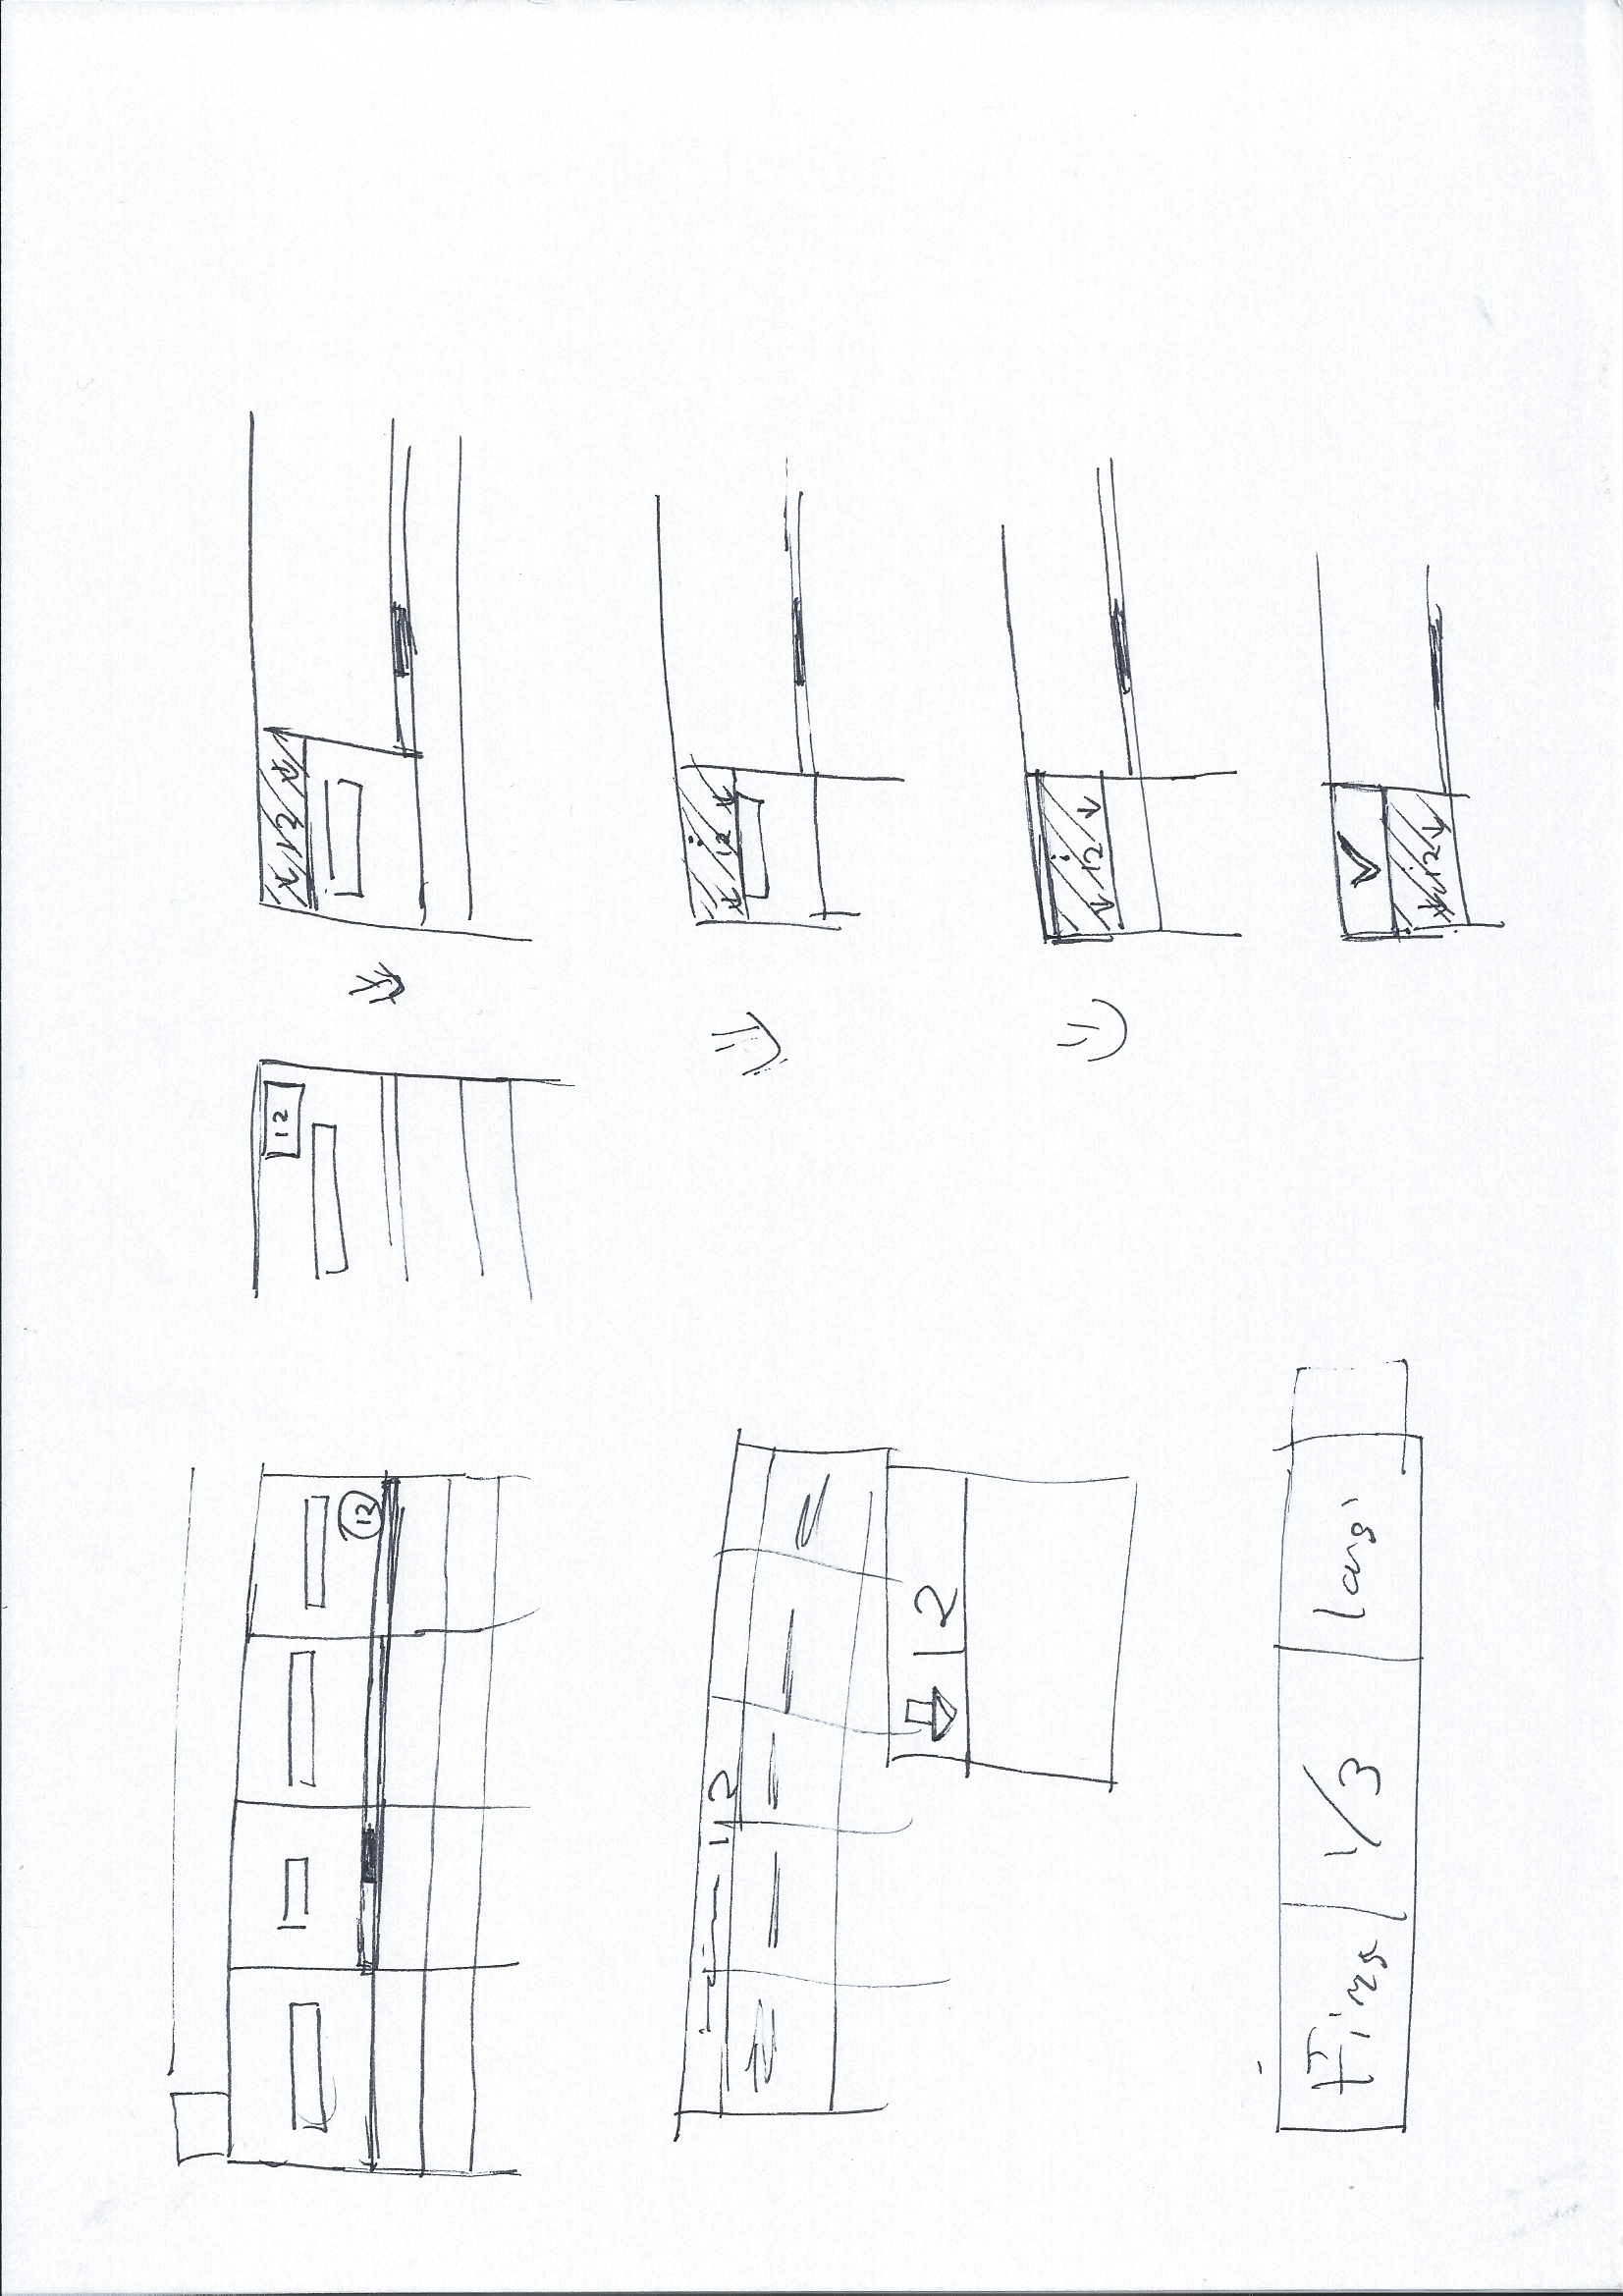 12
12
12
12
12
12
12
12
Firs 1/3 las